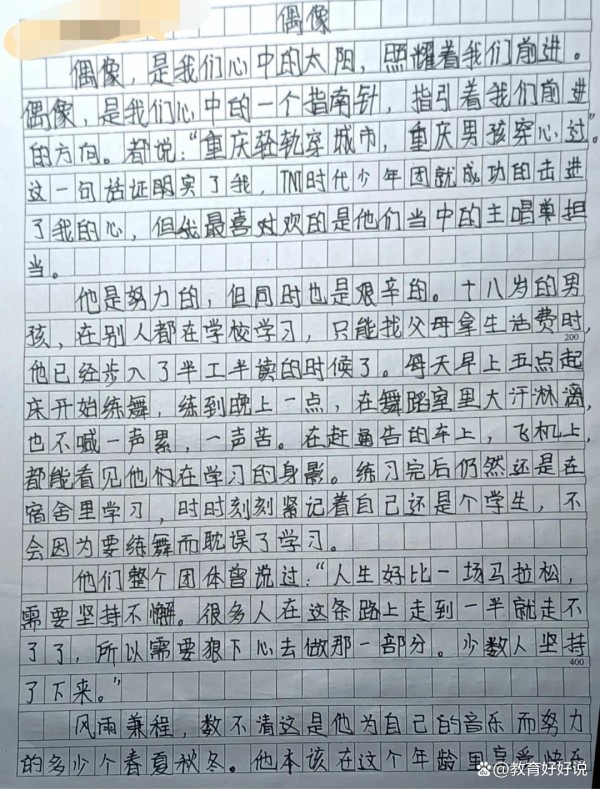 偶像
偶像，是我们心中的太阳，照耀着我们前进。
偶像，是我们心中的一个指南针，指引着我们前进
的方向。都说：“重庆轻轨穿城市，重庆男孩穿心过”。
这一句话证明实了我，TNT时代少年团就成功的击进
了我的心，但我最喜对欢的是他们当中的主唱单担
当。
他是努力的，但同时也是艰辛的。十八岁的男
孩，在别人都在学校学习，只能找父母拿生活费时，
200
他已经步入了半工半读的时候了。每天早上五点起
床开始练舞，练到晚上一点，在舞蹈室里大汗淋漓，
也不喊一声累，一声苦。在赶通告的车上，飞机上，
都能看见他们在学习的身影。练习完后仍然还是在
宿舍里学习，时时刻刻紧记着自己还是个学生，不
会因为要练舞而耽误了学习。
他们整个团体曾说过：“人生好比一场马拉松，
需要坚持不懈。很多人在这条路上走到一半就走不
了了，所以需要狠下心去做那一部分。少数人坚持
400
了下来。”
风雨兼程，数不清这是他为自己的音乐而努力
的多少个春夏秋冬。他本该在这个年龄里享受快乐
@教育好好说